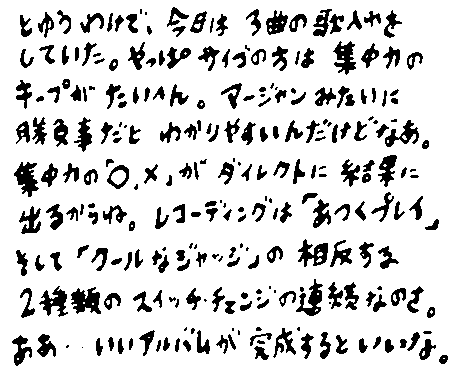 とゆうわけで、今日は3曲の歌入れを
していた。やっぱサイゴの方は集中力の
キープがたいへん。マージャンみたいに
勝負事だとわかりやすいんだけどなあ。
集中力の「○,×」がダイレクトに結果に
出るからね。レコーディングは「あつくプレイ」
そして「クールなジャッジ」の相反する
2種類のスイッチ・チェンジの連続なのさ。
ああ‥いいアルバムが完成するといいな。